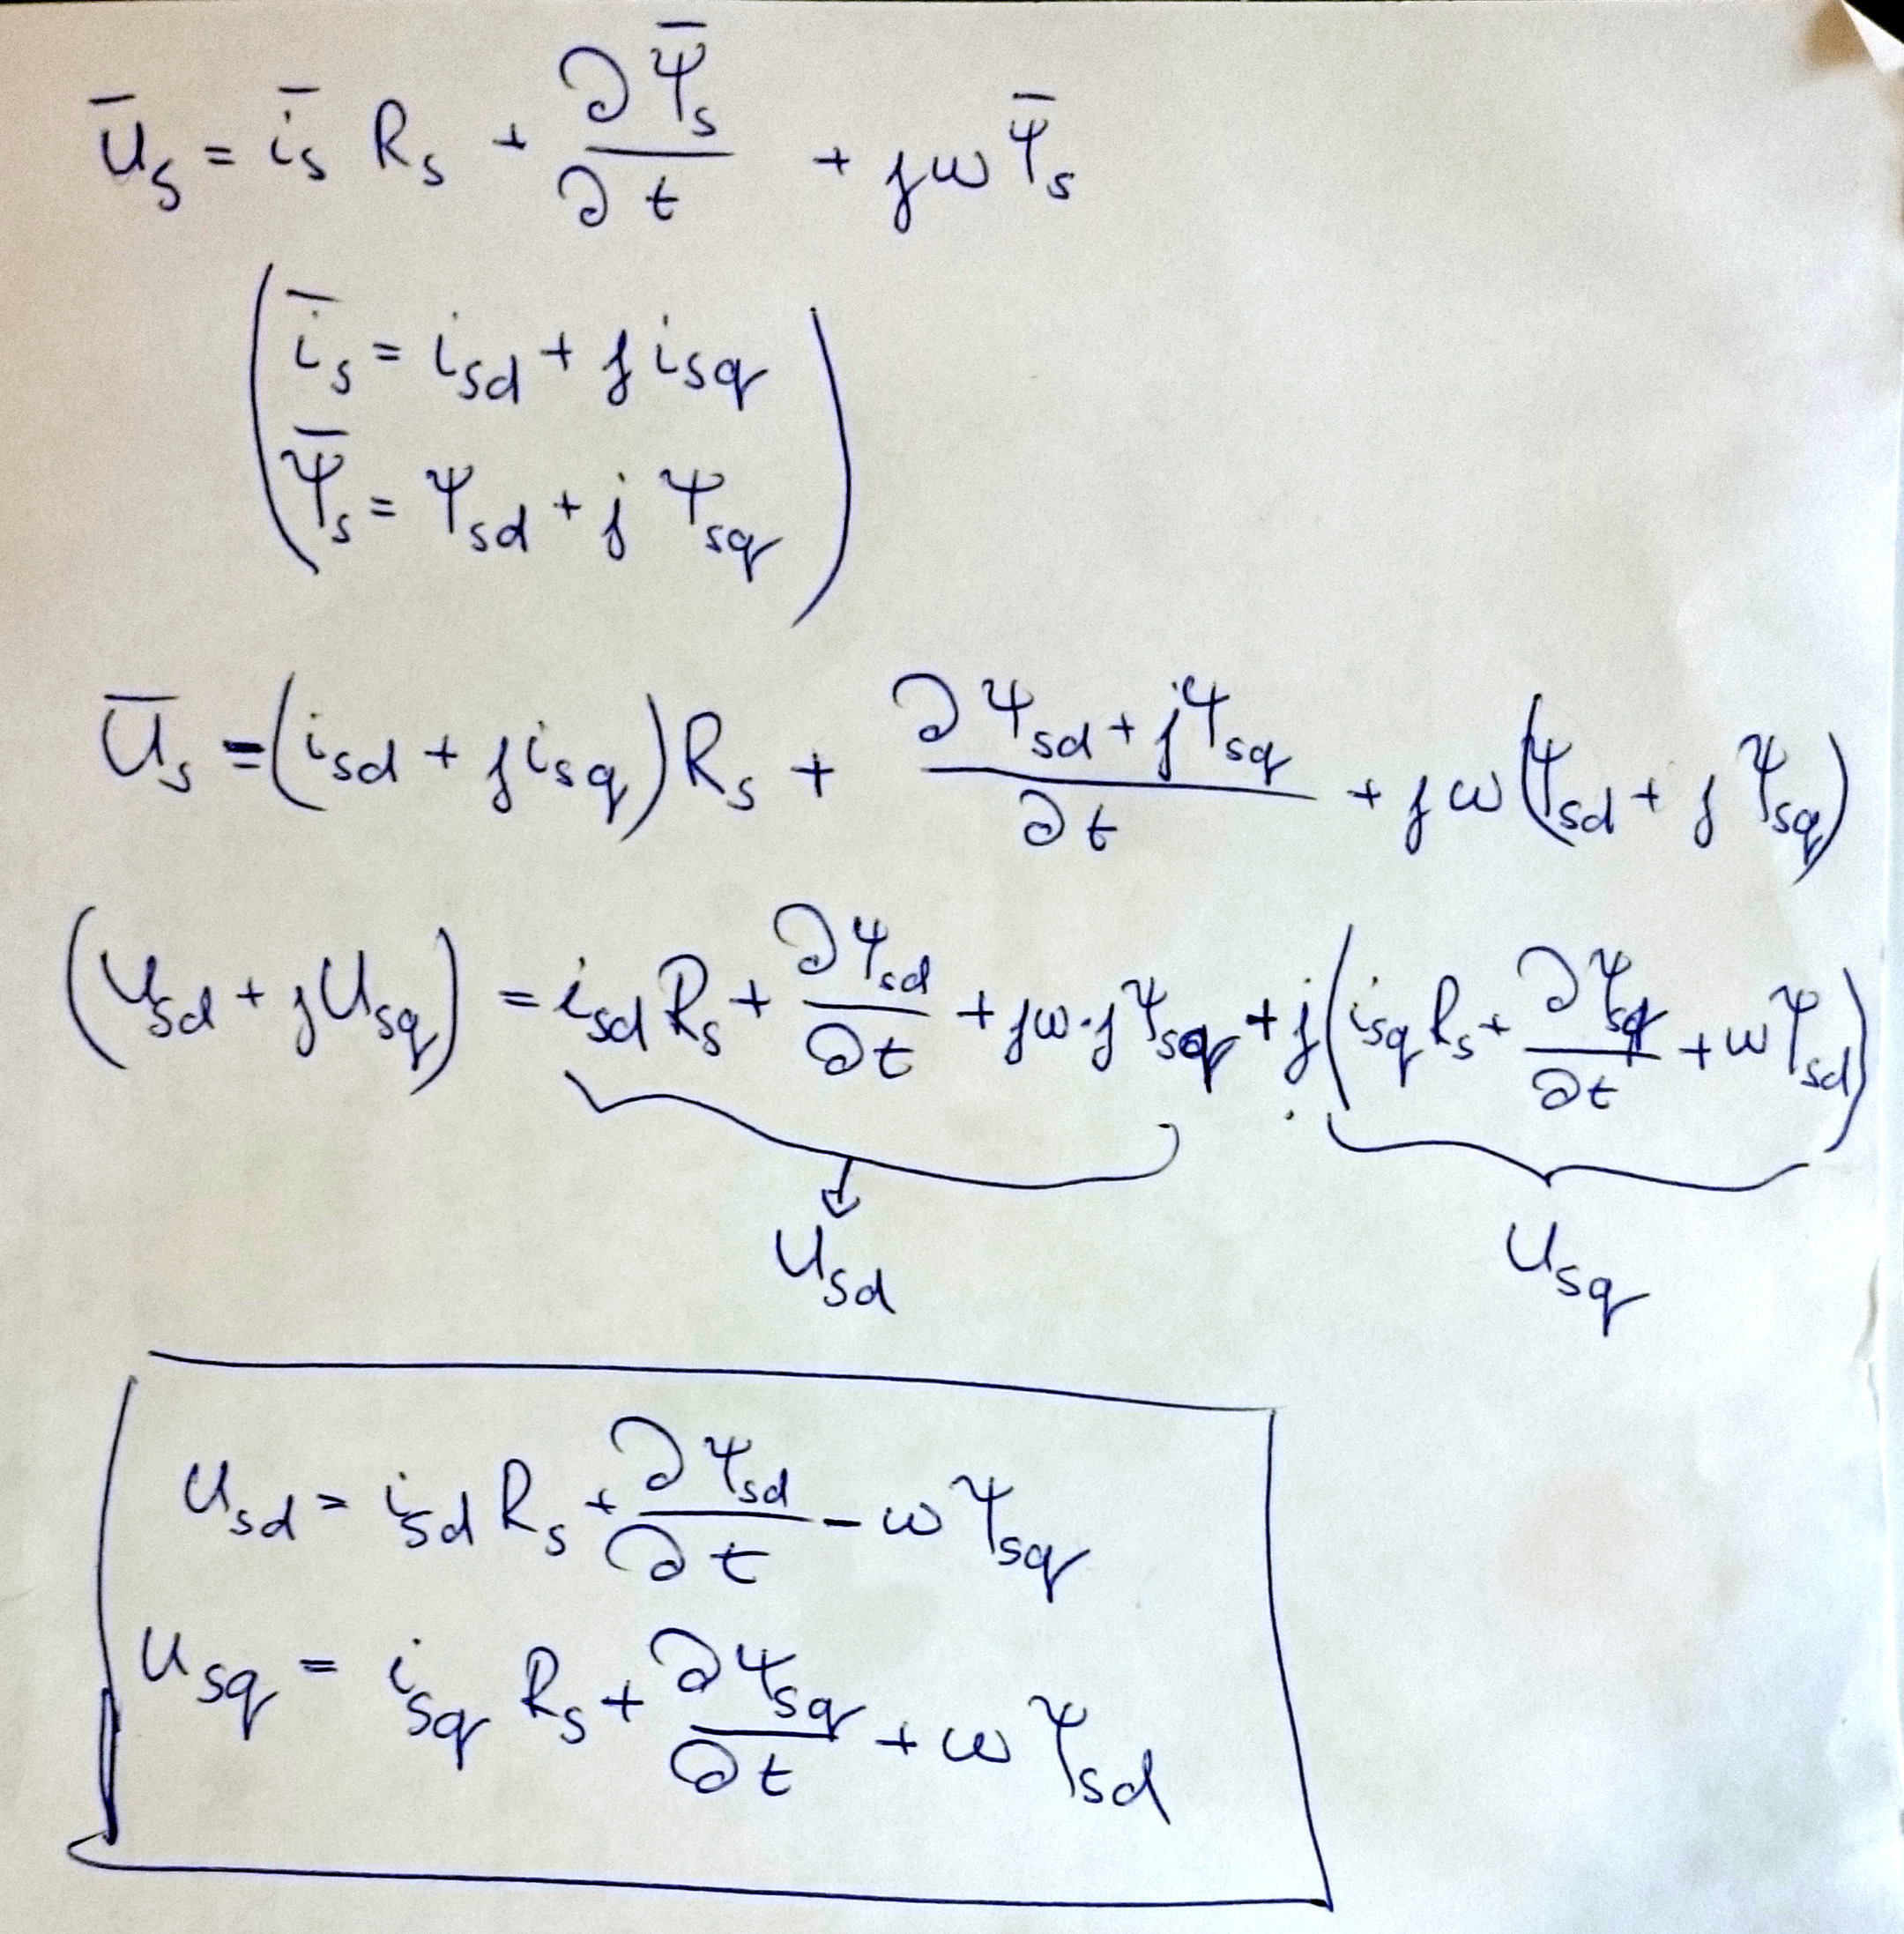 u̅ₛ = i̅ₛ Rₛ + ∂Ψ̅ₛ/∂t + jω Ψ̅ₛ
( i̅ₛ = i_sd + j i_sq
Ψ̅ₛ = Ψ_sd + j Ψ_sq )
U̅ₛ = (i_sd + j i_sq) Rₛ + ∂Ψ_sd + jΨ_sq/∂t + jω (Ψ_sd + j Ψ_sq)
(U_sd + jU_sq) = i_sd Rₛ + ∂Ψ_sd/∂t + jω·jΨ_sq + j(i_sq Rₛ + ∂Ψ_sq/∂t + ωΨ_sd)
↓
U_sd U_sq
U_sd = i_sd Rₛ + ∂Ψ_sd/∂t - ωΨ_sq
U_sq = i_sq Rₛ + ∂Ψ_sq/∂t + ωΨ_sd